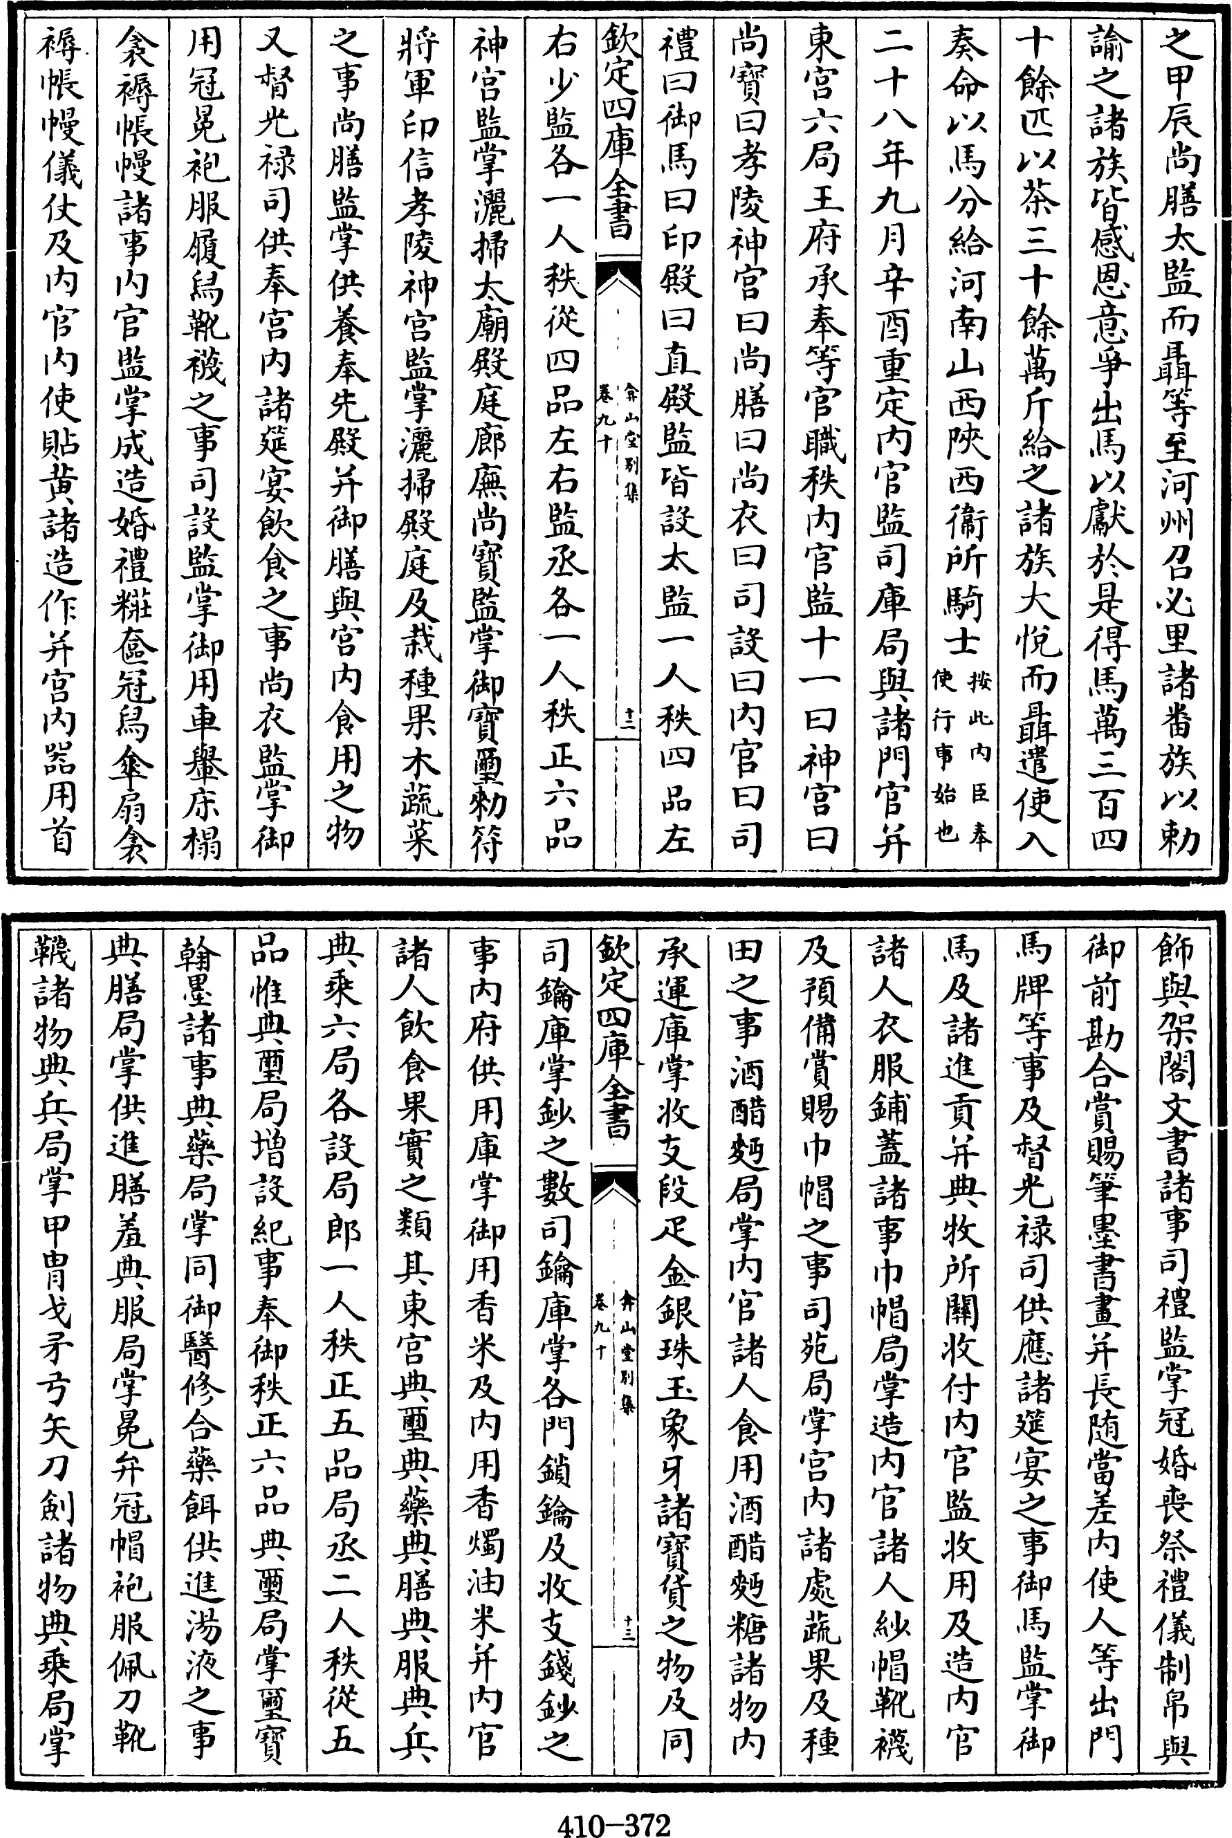 之甲辰尚膳太監而聶等至河州召必里諸番族以勅
諭之諸族皆感恩意爭出馬以獻於是得馬萬三百四
十餘匹以茶三十餘萬斤給之諸族大悅而聶遣使入
奏命以馬分給河南山西陜西衞所騎士按此内臣奉
使行事始也
二十八年九月辛酉重定内官監司庫局與諸門官并
東宮六局王府承奉等官職秩内官監十一曰神宮曰
尚寶曰孝陵神宮曰尚膳曰尚衣曰司設曰内官曰司
禮曰御馬曰印殿曰直殿監皆設太監一人秩四品左
欽定四庫全書
弇山堂别集
卷九十
十二
右少監各一人秩從四品左右監丞各一人秩正六品
神宮監掌灑掃太廟殿庭廊廡尚寶監掌御寶璽勅符
將軍印信孝陵神宮監掌灑掃殿庭及栽種果木蔬菜
之事尚膳監掌供養奉先殿并御膳與宮内食用之物
又督光禄司供奉宮内諸筵宴飲食之事尚衣監掌御
用冠冕袍服履舄靴襪之事司設監掌御用車轝床榻
衾褥帳幔諸事内官監掌成造婚禮糚奩冠舄傘扇衾
褥帳幔儀仗及内官内使貼黄諸造作并宮内器用首
飾與架閣文書諸事司禮監掌冠婚喪祭禮儀制帛與
御前勘合賞賜筆墨書畫并長随當差内使人等出門
馬牌等事及督光禄司供應諸筵宴之事御馬監掌御
馬及諸進貢并典牧所關收付内官監收用及造内官
諸人衣服鋪蓋諸事巾帽局掌造内官諸人紗帽靴襪
及預備賞賜巾帽之事司苑局掌宮内諸處蔬果及種
田之事酒醋麪局掌内官諸人食用酒醋麪糖諸物内
承運庫掌收支段疋金銀珠玉象牙諸寶貨之物及同
欽定四庫全書
弇山堂别集
卷九十
十三
司鑰庫掌鈔之數司鑰庫掌各門鎖鑰及收支錢鈔之
事内府供用庫掌御用香米及内用香燭油米并内官
諸人飲食果實之類其東宮典璽典藥典膳典服典兵
典乗六局各設局郎一人秩正五品局丞二人秩從五
品惟典璽局增設紀事奉御秩正六品典璽局掌璽寶
翰墨諸事典藥局掌同御醫修合藥餌供進湯液之事
典膳局掌供進膳羞典服局掌冕弁冠帽袍服佩刀靴
韈諸物典兵局掌甲冑戈矛弓矢刀劍諸物典乗局掌
410-372